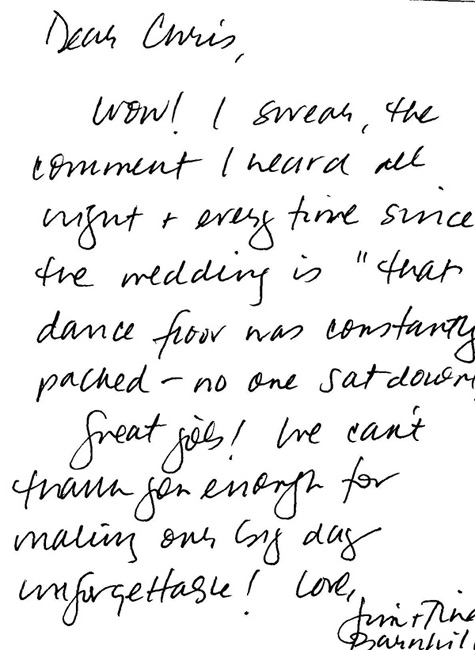 Dear Chris,
Wow! I swear, the
comment I heard all
night + every time since
the wedding is "that
dance floor was constantly
packed – no one sat down
Great job! We can't
thank you enough for
making our big day
unforgettable! Love,
Jim + Tina